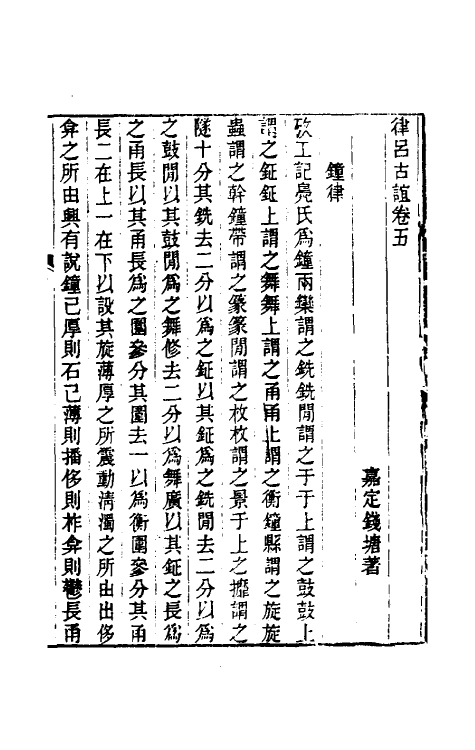 律呂古誼卷五
嘉定錢塘著
鐘律
攷工記鳧氏爲鐘兩欒謂之銑銑閒謂之于于上謂之鼓鼓上
謂之鉦鉦上謂之舞舞上謂之甬甬上謂之衡鐘縣謂之旋旋
蟲謂之幹鐘帶謂之篆篆閒謂之枚枚謂之景于上之攠謂之
隧十分其銑去二分以爲之鉦以其鉦爲之銑閒去二分以爲
之鼓閒以其鼓閒爲之舞修去二分以爲舞廣以其鉦之長爲
之甬長以其甬長爲之圍參分其圍去一以爲衡圍參分其甬
長二在上一在下以設其旋薄厚之所震動淸濁之所由出侈
弇之所由興有說鐘已厚則石已薄則播侈則柞弇則鬱長甬